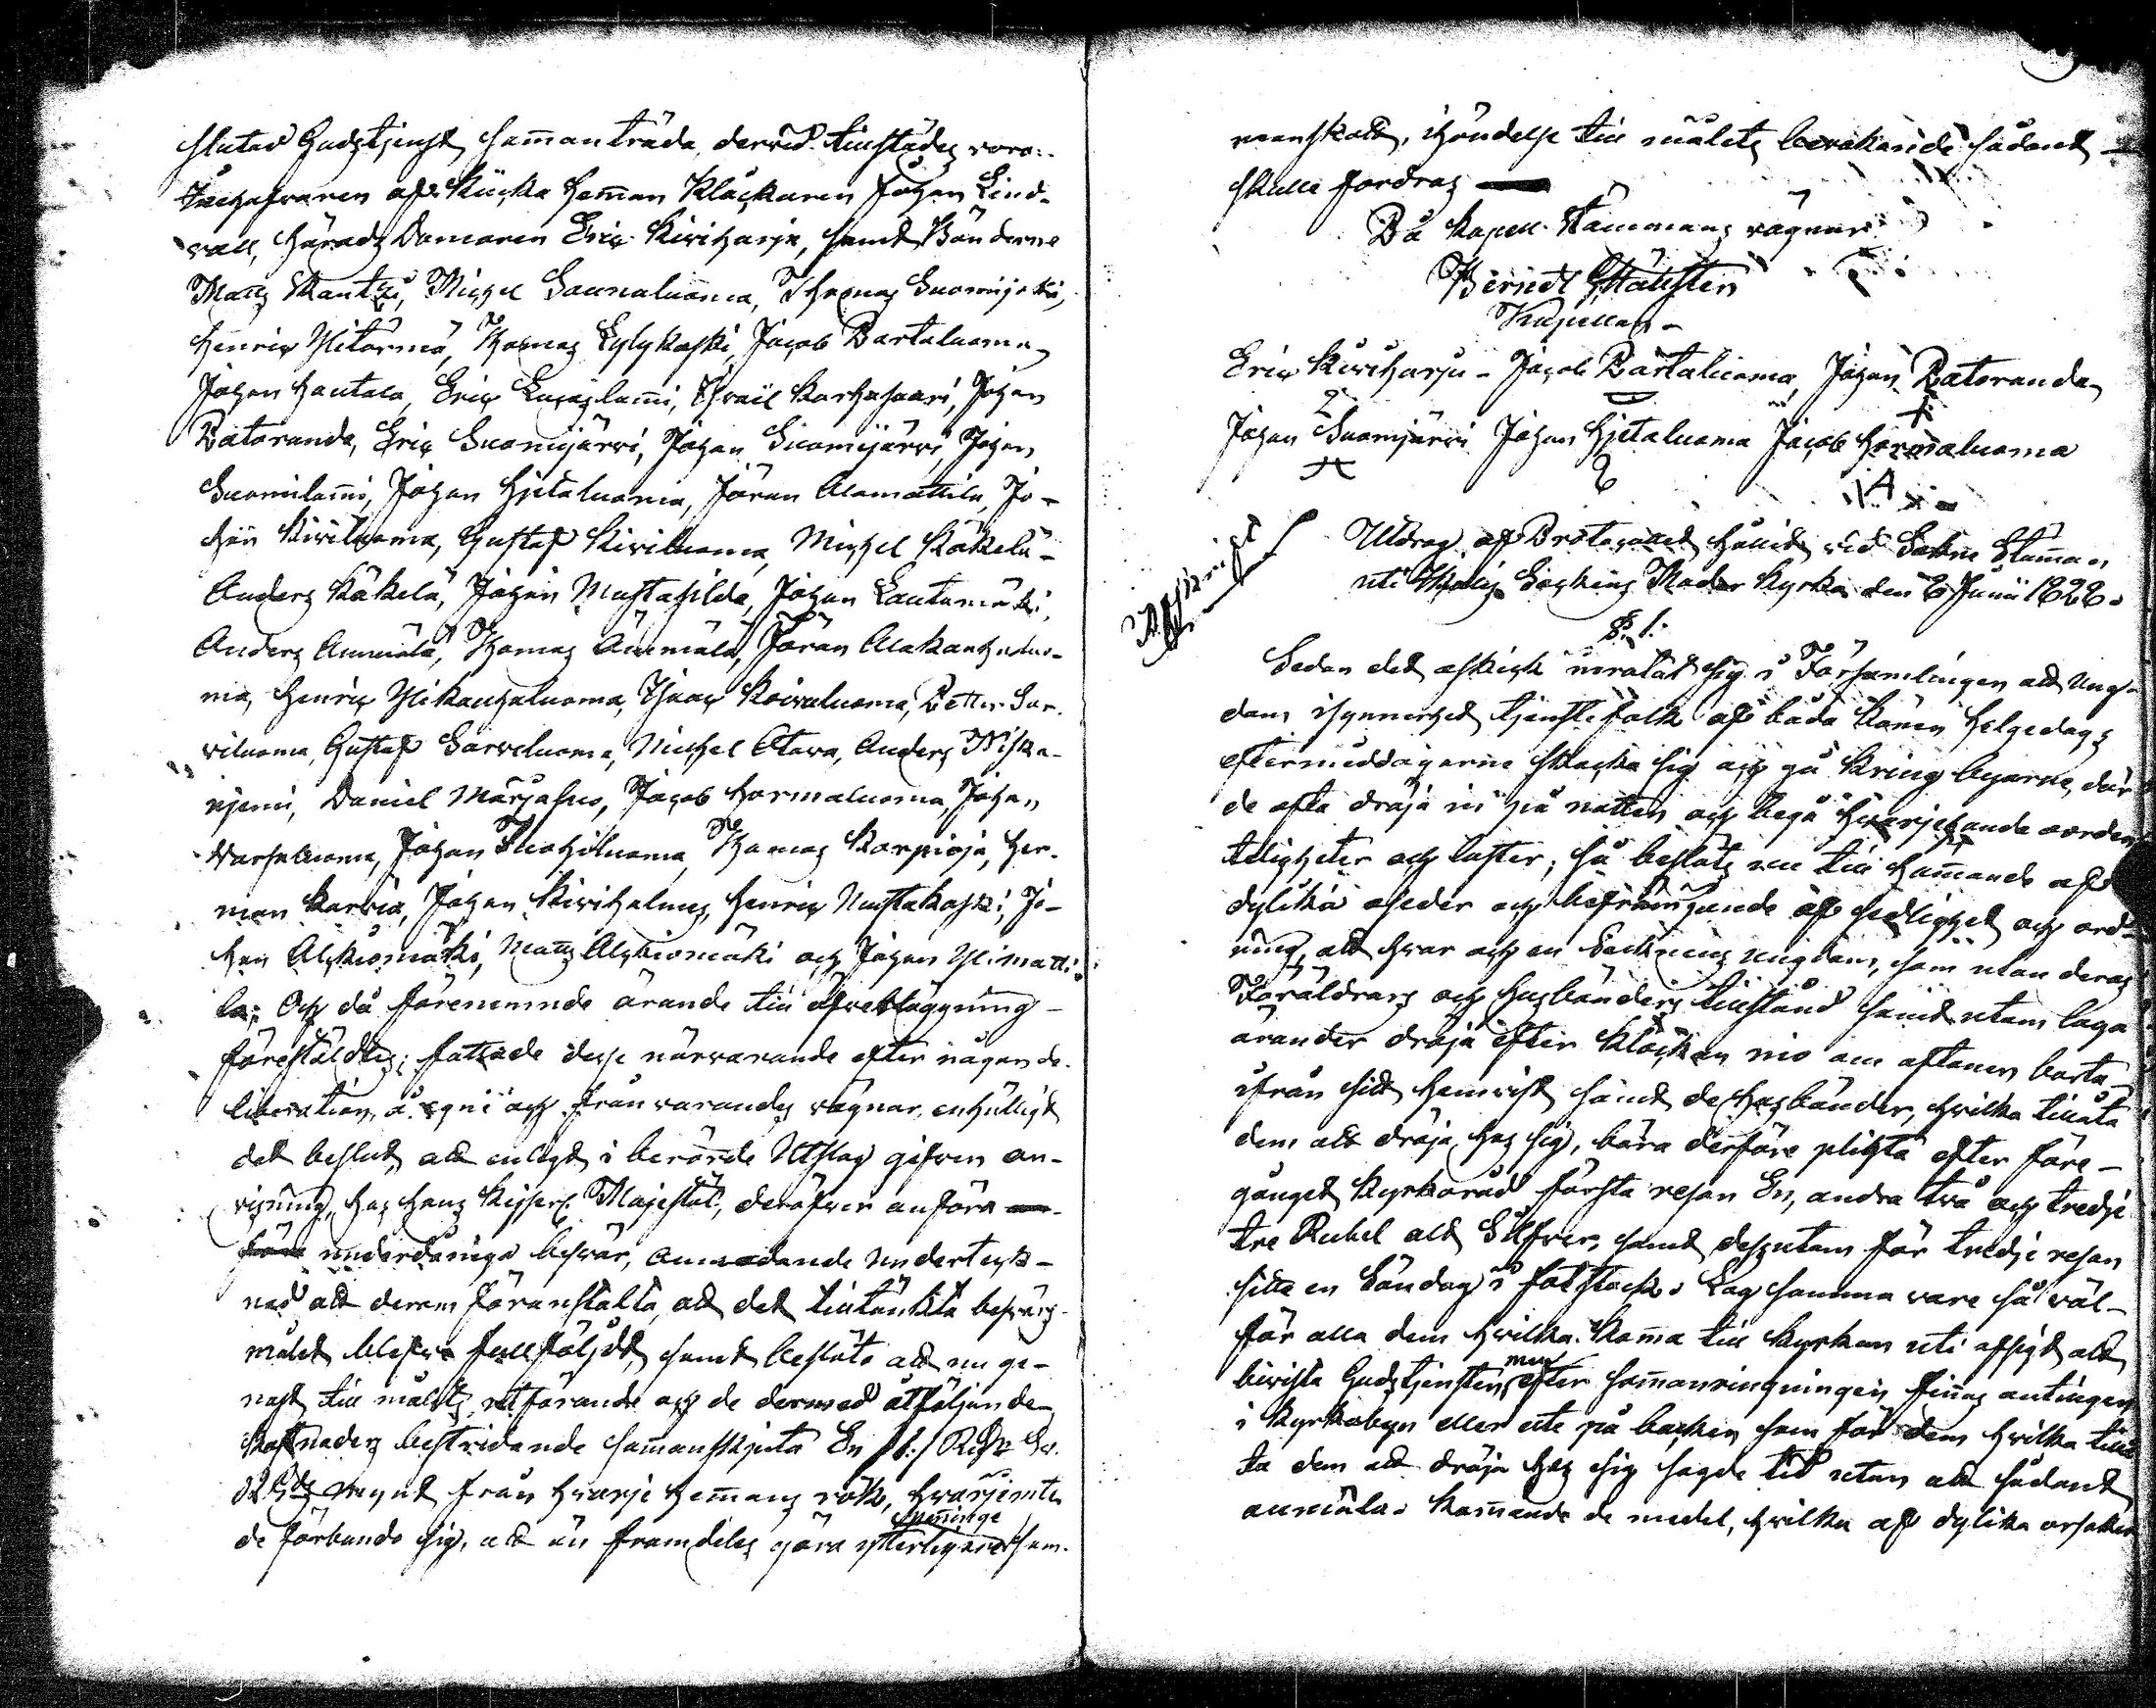 slutad Gudstjenst sammanträda, dervid tillstädes voro:
Innehafvaren af Kiicka Hemman Klåckaren Johan Lind-
vall, Härads Domaren Eric Kiviharju, samt Bönderne
Matts Mantyi, Michel Saunaluoma, Thomas Suomijerki,
Henric Ylitörmä, Thomas Sylykoski, Jacob Partaluoma,
Johan Hautala, Eric Lusaslammi, Israil Karhusaari, Johan
Patoranda, Eric Suomijärvi, Johan Suomijärvi, Johan
Suomilammi, Johan Hjetaluoma, Jöran Alamattila, Jo-
han Kiviluoma, Gustaf Kiviluoma, Michel Käkelä,
Anders Käkelä, Johan Mustasilda, Johan Lautamäki,
Anders Aumälä, Thomas Aumälä, Jöran Alakauhaluo-
ma, Henric Ylikauhaluoma, Isaac Koivuluoma, Petter Sar-
viluoma, Gustaf Sarviluoma, Michel Otava, Anders Niska-
njemi, Daniel Marjasuo, Jacob Harmaluoma, Johan
Varsaluoma, Johan Isohiluoma, Thomas Korpioja, Her-
man Karvia, Johan Kiviholmes, Henric Mustakoski, Jo-
han Alkiomäki, Matts Alkiomäki och Johan Ylimatti-
la; Och då förenemnde ärende till öfverläggning
föreställdtes; fattade desse närvarande efter någon de-
liberation, å egne och frånvarandes vägnar, enhälligt
det beslut, att enligt i berörde Utslag gifven an-
visning, hos Hans Kejserl. Majestät, deröfver anföra
underdåniga besvär, anmodande underteck-
nad att derom föranstalta, att det tilltänkta besvärs-
målet blefve fullföljdt, samt beslöto att nu ge-
nast till målets utförande och de dermed åtföljande
kostnaders bestridande sammanskjuta En /1:/ Rdr
mynt från hvarje Hemmans rök, hvarjemte
de förbundo sig, att än framdeles göra ytterligare penninge sam-
manskott, ihändelse till målets bevakande sådant
skulle fordras
På Kapell Stämmans vägnar
Berndt Hällsten
Kapellan.
Eric Kiviharju - Jacob Partaluoma, Johan Patoranda,
Johan Suomijärvi Johan Hjetaluoma Jacob Harmaluoma
Afskrift
Utdrag af Protocollet hållit vid Sockne Stämman
uti Moder Kyrka den 8 Junii 1828.
§. 1.
Sedan det oskick inrotat sig i Församlingen att Ung-
dom isynnerhet tjenstefolk af båda Könen helgedags
eftermiddagarne skocka sig och gå kring byarne, där
de ofta dröja in på natten och begå hvarjehanda oorden-
teligheter och laster; så beslöts nu till hämande af
dylika oseder och befrämjande af sedlighet och ord-
ning, att hvar och en Sockneus ungdom, som utan deras
Föräldrars och husbönders tillstånd samt utom laga
ärander dröja efter Klåckan nio om aftonen borta
ifrån sitt hemvist samt de husbönder, hvilka tillåta
dem att dröja hos sig, böra derföre pligta efter före-
gånget Kyrkoråd första resan En, andra två och tredje
tre Rubel alt Silfver, samt dessutom för tredje resan
sitta en Söndag i fotstock. Lag samma vare så väl
för alla dem hvilka komma till Kyrkan uti afsigt att
bivista Gudstjensten, men efter sammanringningen finnas antingen
i Kyrkobyn eller ute på backen som för dem hvilka tillå-
ta dem att dröja hos sig sagde tid utan att sådant
anmäla. kommande de medel, hvilka af dylika orsaker